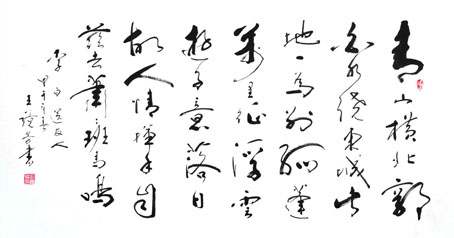 青山橫北郭
白水繞東城此
地一為別孤蓬
萬里征浮雲
游子意落日
故人情揮手自
茲去蕭々班馬鳴
李白送友人
甲午年
王書